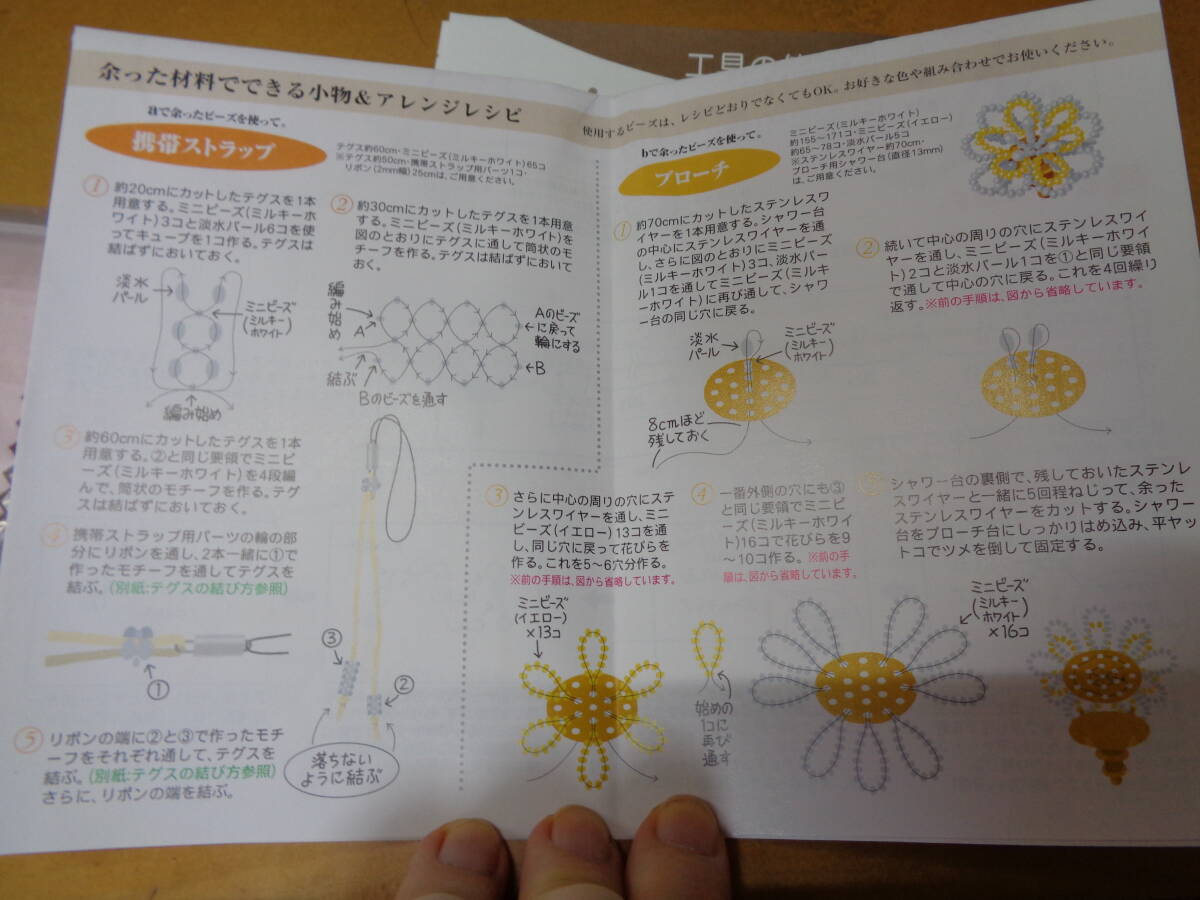 工具の
余った材料でできる小物&アレンジレシピ
使用するビーズは、レシピどおりでなくてもOK。お好きな色や組み合わせでお使いください。
aで余ったビーズを使って。
携帯ストラップ
テグス約60cm・ミニビーズ(ミルキーホワイト)65コ
※テグス約50cm・携帯ストラップ用パーツ1コ・
リボン(2mm幅)25cmは、ご用意ください。
① 約20cmにカットしたテグスを1本
用意する。ミニビーズ(ミルキーホ
ワイト)3コと淡水パール6コを使
ってキューブを1コ作る。テグスは
結ばずにおいておく。
淡水
パール
ミニビーズ
(ミルキー
ホワイト)
編み始め
② 約30cmにカットしたテグスを1本用意
する。ミニビーズ(ミルキーホワイト)を
図のとおりにテグスに通して筒状のモ
チーフを作る。テグスは結ばずにおいて
おく。
編み始め
A
Aのビーズ
に戻って
輪にする
B
結ぶ
Bのビーズを通す
③ 約60cmにカットしたテグスを1本
用意する。②と同じ要領でミニビ
ーズ(ミルキーホワイト)を4段編
んで、筒状のモチーフを作る。テグ
スは結ばずにおいておく。
④ 携帯ストラップ用パーツの輪の部
分にリボンを通し、2本一緒に①で
作ったモチーフを通してテグスを
結ぶ。(別紙:テグスの結び方参照)
①
③
②
落ちない
ように結ぶ
⑤ リボンの端に②と③で作ったモチ
ーフをそれぞれ通して、テグスを
結ぶ。(別紙:テグスの結び方参照)
さらに、リボンの端を結ぶ。
bで余ったビーズを使って。
ブローチ
ミニビーズ(ミルキーホワイト)
約155~171コ・ミニビーズ(イエロー)
約65~78コ・淡水パール5コ
※ステンレスワイヤー約70cm・
ブローチ用シャワー台(直径13mm)
は、ご用意ください。
① 約70cmにカットしたステンレスワ
イヤーを1本用意する。シャワー台
の中心にステンレスワイヤーを通
し、さらに図のとおりにミニビーズ
(ミルキーホワイト)3コ、淡水パー
ル1コを通してミニビーズ(ミルキ
ーホワイト)に再び通して、シャワ
ー台の同じ穴に戻る。
淡水
パール
ミニビーズ
(ミルキー
ホワイト)
8cmほど
残しておく
② 続いて中心の周りの穴にステンレスワイ
ヤーを通し、ミニビーズ(ミルキーホワイ
ト)2コと淡水パール1コを①と同じ要領
で通して中心の穴に戻る。これを4回繰り
返す。※前の手順は、図から省略しています。
③ さらに中心の周りの穴にステ
ンレスワイヤーを通し、ミニ
ビーズ(イエロー)13コを通
し、同じ穴に戻って花びらを
作る。これを5~6穴分作る。
※前の手順は、図から省略しています。
ミニビーズ
(イエロー)
×13コ
始めの
1コに
再び
通す
④ 一番外側の穴にも③
と同じ要領でミニビ
ーズ(ミルキーホワイ
ト)16コで花びらを9
~10コ作る。※前の手
順は、図から省略しています。
ミニビーズ
(ミルキー
ホワイト)
×16コ
シャワー台の裏側で、残しておいたステンレ
スワイヤーと一緒に5回程ねじって、余った
ステンレスワイヤーをカットする。シャワー
台をブローチ台にしっかりはめ込み、平ヤッ
トコでツメを倒して固定する。